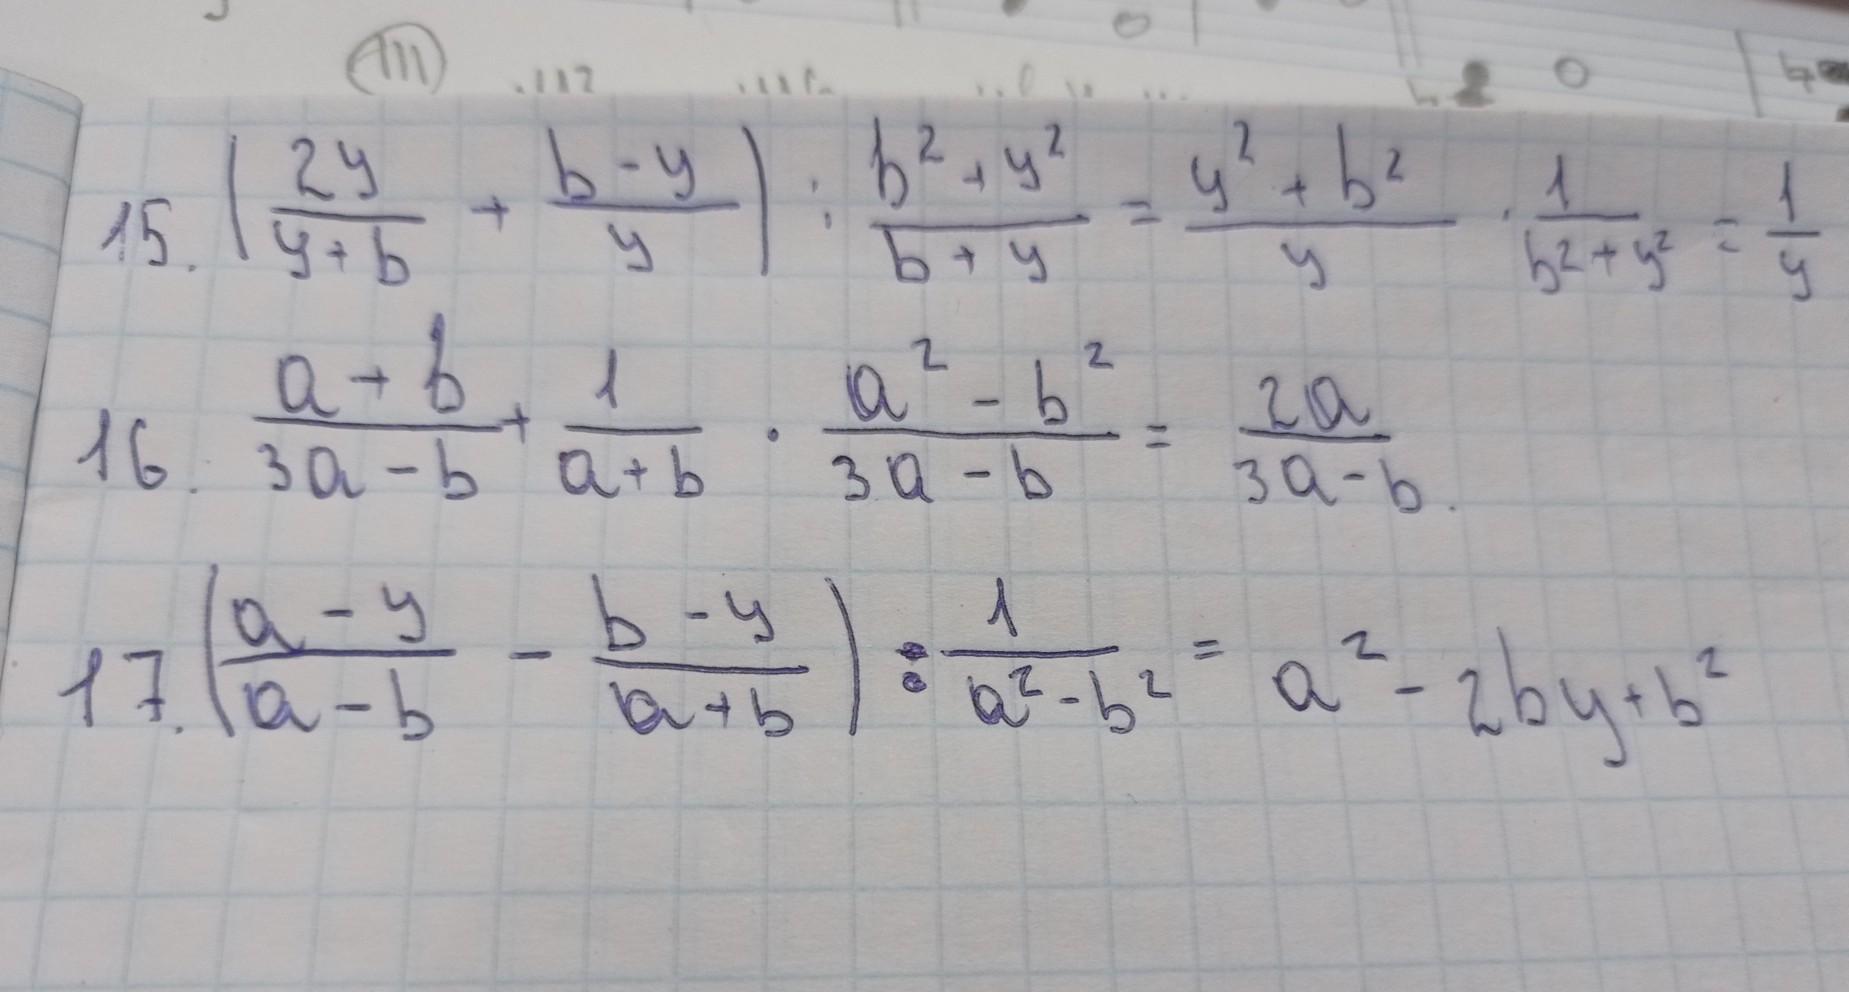 15. (2y/(y+b) + (b-y)/y) : (b²+y²)/(b+y) = (y²+b²)/y · 1/(b²+y²) = 1/y
16. (a+b)/(3a-b) + 1/(a+b) · (a²-b²)/(3a-b) = 2a/(3a-b).
17. ((a-y)/(a-b) - (b-y)/(a+b)) : 1/(a²-b²) = a²-2by+b²